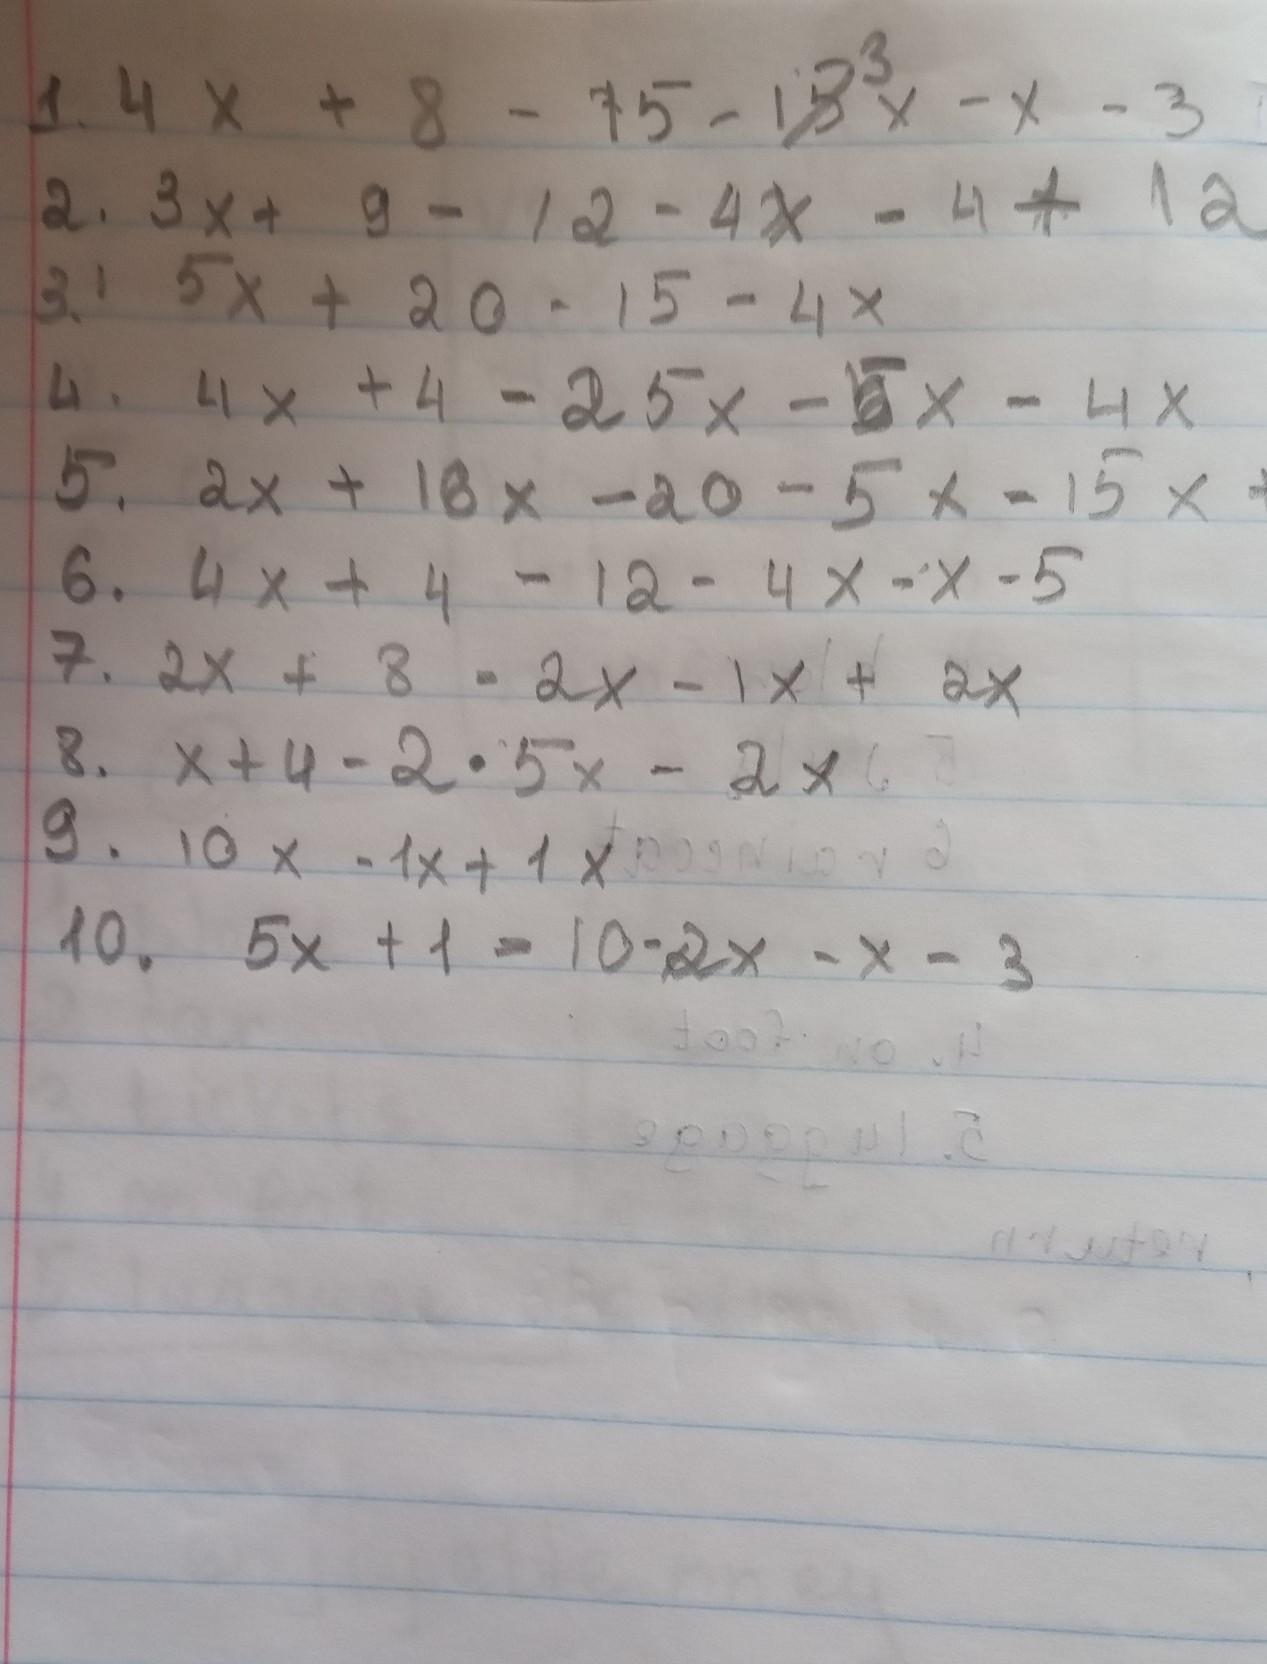 1. 4x + 8 - 75 - 13x - x - 3
2. 3x + 9 - 12 - 4x - 4 + 12
3. 5x + 20 - 15 - 4x
4. 4x + 4 - 25x - 5x - 4x
5. 2x + 18x - 20 - 5x - 15x +
6. 4x + 4 - 12 - 4x - x - 5
7. 2x + 8 - 2x - 1x + 2x
8. x + 4 - 2 · 5x - 2x
9. 10x - 1x + 1x
10. 5x + 1 - 10 - 2x - x - 3
4. on foot
5. luggage
return